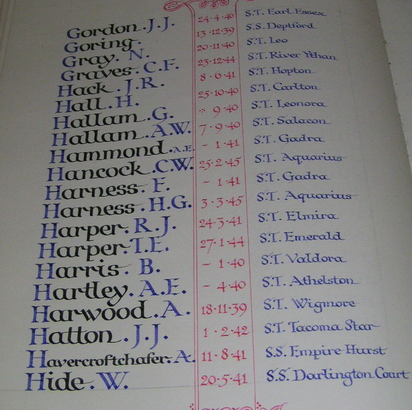 Gordon. J. J. 24·4·40 S.T. Earl Essex
Goring. 13·12·39 S.S. Deptford
Gray. N. 20·11·40 S.T. Leo
Graves. C.F. 23·12·44 S.T. River Ythan
Hack. J.R. 8·6·41 S.T. Hopton
Hall. H. 25·10·40 S.T. Carlton
Hallam. G. - 9·40 S.T. Leonora
Hallam. A.W. 7·9·40 S.T. Salacon
Hammond. A.E. - 1·41 S.T. Gadra
Hancock. C.W. 25·2·45 S.T. Aquarius
Harness. F. - 1·41 S.T. Gadra
Harness. H.G. 3·3·45 S.T. Aquarius
Harper. R.J. 24·3·41 S.T. Elmira
Harper. T.E. 27·1·44 S.T. Emerald
Harris. B. - 1·40 S.T. Valdora
Hartley. A.E. - 4·40 S.T. Athelston
Harwood. A. 18·11·39 S.T. Wigmore
Hatton. J.J. 1·2·42 S.T. Tacoma Star
Havercroftchafer. A. 11·8·41 S.S. Empire Hurst
Hide. W. 20·5·41 S.S. Darlington Court